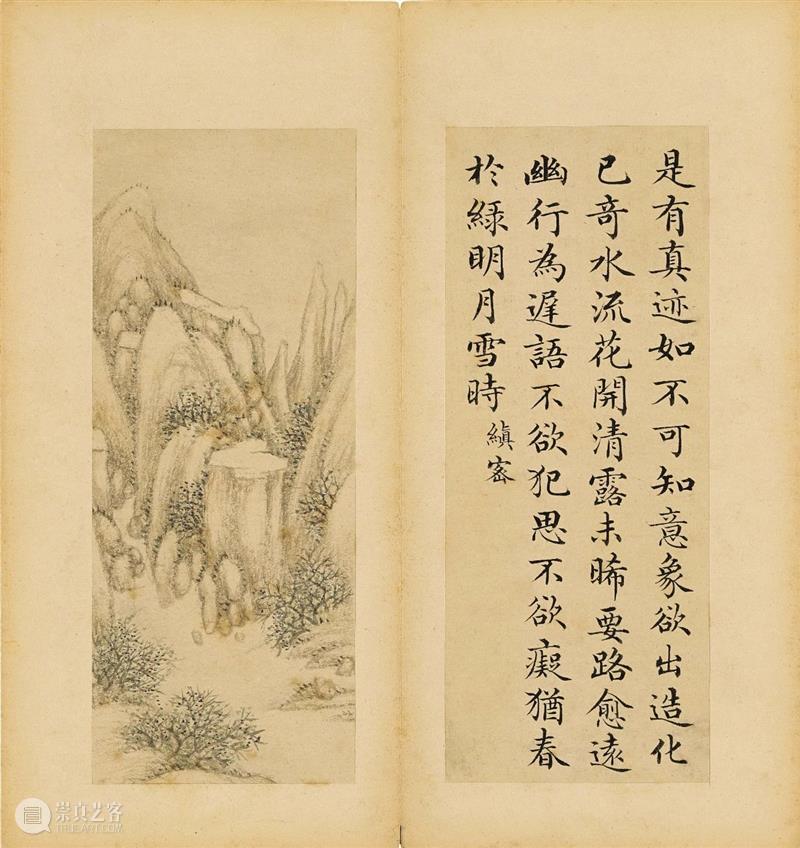 是有真迹如不可知意象欲出造化
已竒水流花開清露未晞要路愈遠
幽行為遲語不欲犯思不欲癡猶春
於緑明月雪時 縝密
崇真艺客
TRUEART.COM